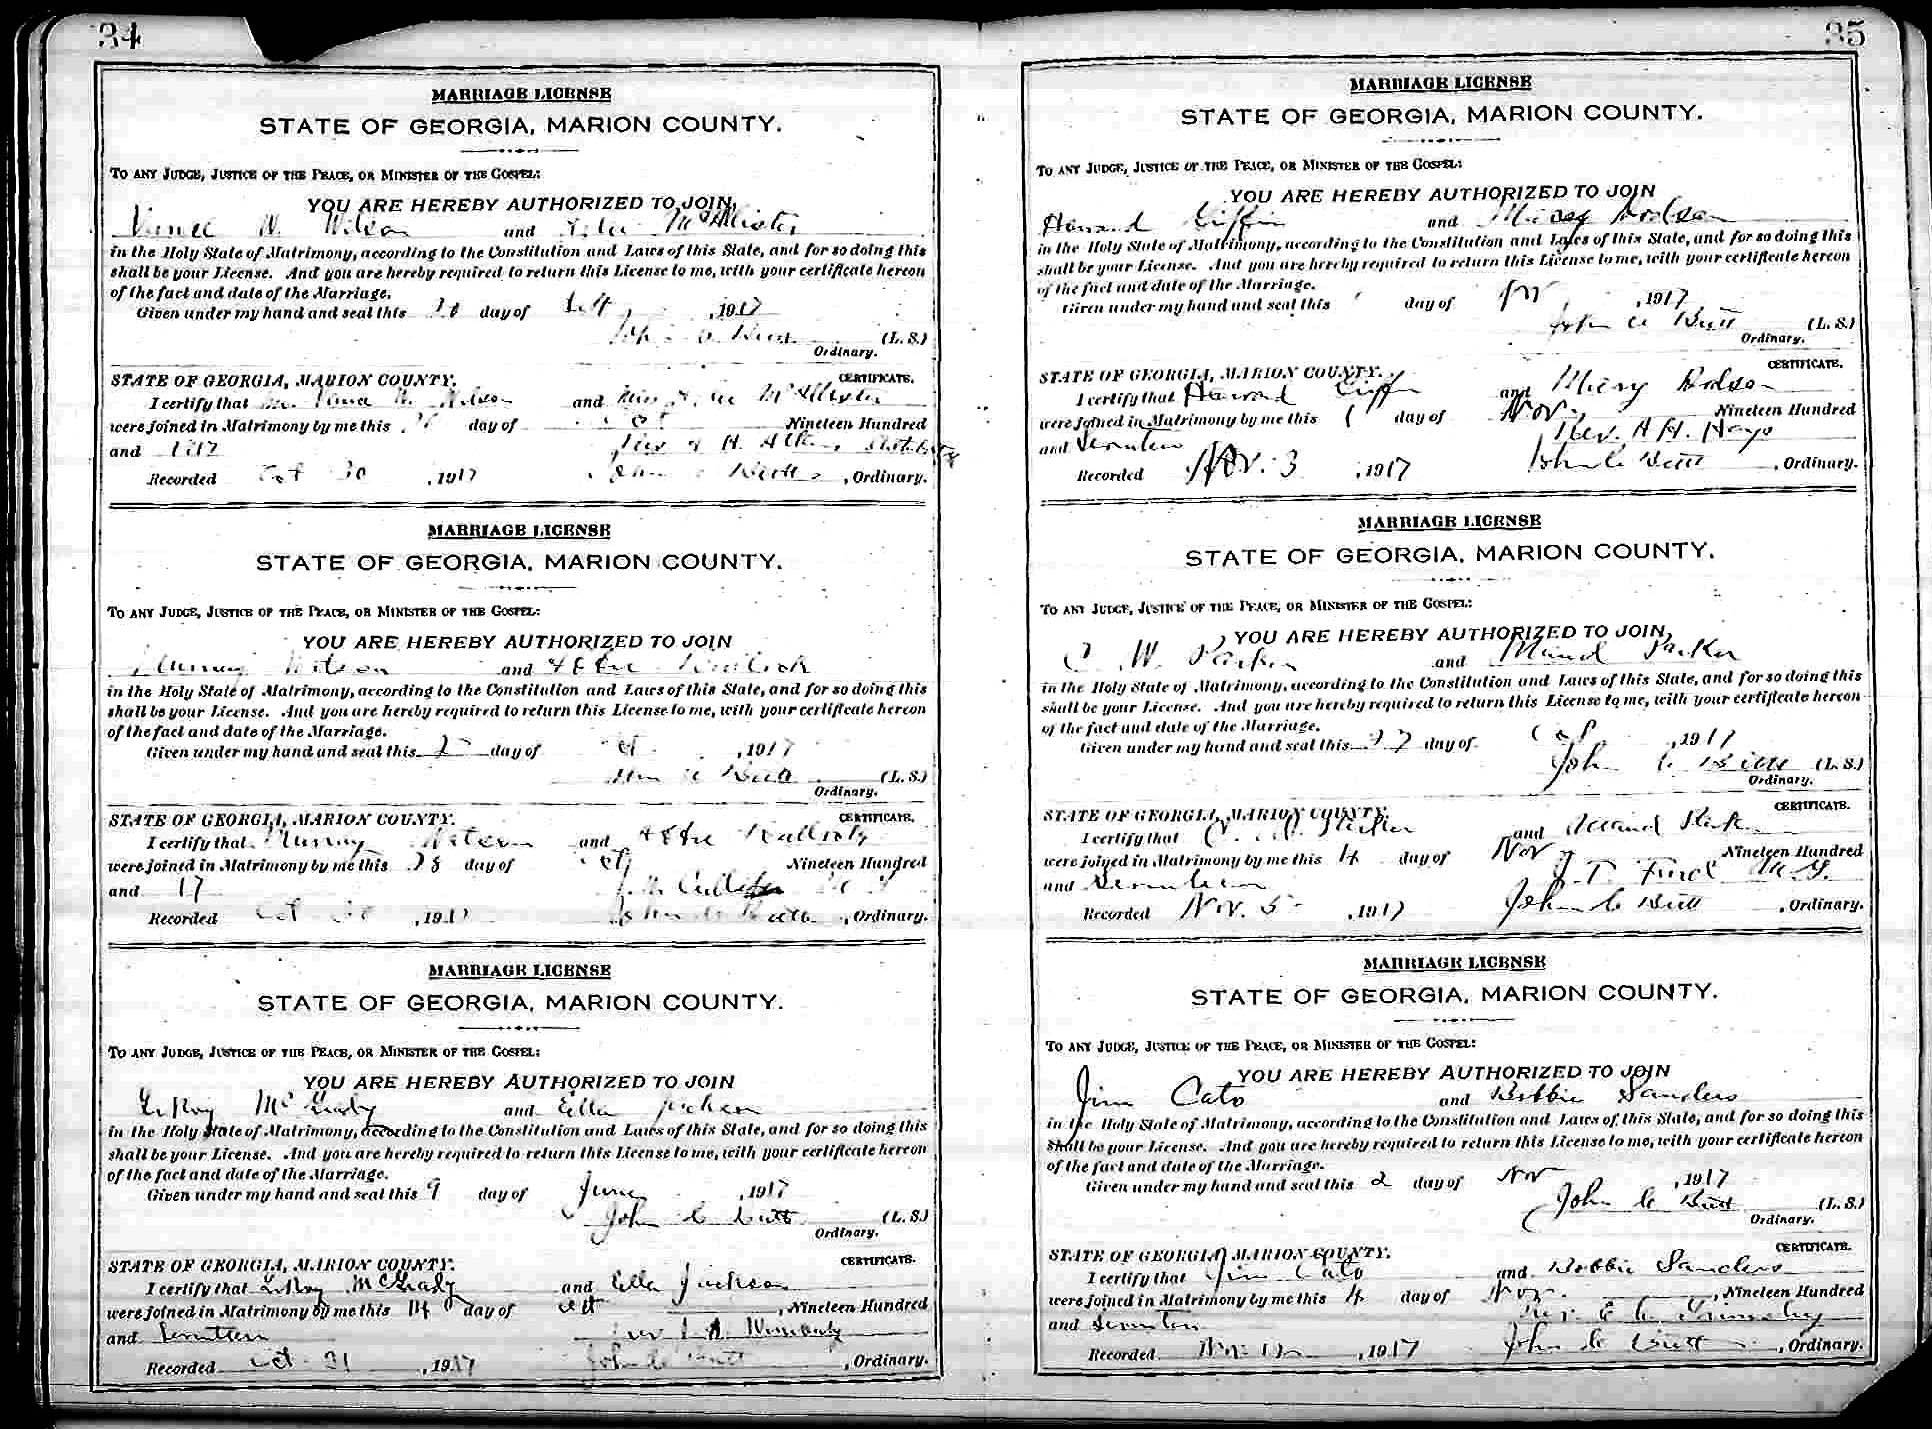 34
MARRIAGE LICENSE
STATE OF GEORGIA, MARION COUNTY.
TO ANY JUDGE, JUSTICE OF THE PEACE, OR MINISTER OF THE GOSPEL:
YOU ARE HEREBY AUTHORIZED TO JOIN
Vance W. Wilson and McAllister
in the Holy State of Matrimony, according to the Constitution and Laws of this State, and for so doing this
shall be your License. And you are hereby required to return this License to me, with your certificate hereon
of the fact and date of the Marriage.
Given under my hand and seal this day of , 1917
John C Butt (L. S.)
Ordinary.
CERTIFICATE.
STATE OF GEORGIA, MARION COUNTY.
I certify that Mr. Vance W. Wilson and Miss McAllister
were joined in Matrimony by me this day of Nineteen Hundred
and 1917
Recorded Oct 30 , 1917 John C Butt , Ordinary.
MARRIAGE LICENSE
STATE OF GEORGIA, MARION COUNTY.
TO ANY JUDGE, JUSTICE OF THE PEACE, OR MINISTER OF THE GOSPEL:
YOU ARE HEREBY AUTHORIZED TO JOIN
Murray and
in the Holy State of Matrimony, according to the Constitution and Laws of this State, and for so doing this
shall be your License. And you are hereby required to return this License to me, with your certificate hereon
of the fact and date of the Marriage.
Given under my hand and seal this day of , 1917
John C Butt (L. S.)
Ordinary.
CERTIFICATE.
STATE OF GEORGIA, MARION COUNTY.
I certify that Murray and
were joined in Matrimony by me this 28 day of Oct Nineteen Hundred
and 17
Recorded Oct 30 , 1917 John C Butt , Ordinary.
MARRIAGE LICENSE
STATE OF GEORGIA, MARION COUNTY.
TO ANY JUDGE, JUSTICE OF THE PEACE, OR MINISTER OF THE GOSPEL:
YOU ARE HEREBY AUTHORIZED TO JOIN
LeRoy McGrady and Ella Jackson
in the Holy State of Matrimony, according to the Constitution and Laws of this State, and for so doing this
shall be your License. And you are hereby required to return this License to me, with your certificate hereon
of the fact and date of the Marriage.
Given under my hand and seal this 9 day of June , 1917
John C Butt (L. S.)
Ordinary.
CERTIFICATE.
STATE OF GEORGIA, MARION COUNTY.
I certify that LeRoy McGrady and Ella Jackson
were joined in Matrimony by me this 14 day of Oct , Nineteen Hundred
and Seventeen Rev
Recorded Oct 31 , 1917 John C Butt , Ordinary.
35
MARRIAGE LICENSE
STATE OF GEORGIA, MARION COUNTY.
TO ANY JUDGE, JUSTICE OF THE PEACE, OR MINISTER OF THE GOSPEL:
YOU ARE HEREBY AUTHORIZED TO JOIN
Howard Giffin and Dodson
in the Holy State of Matrimony, according to the Constitution and Laws of this State, and for so doing this
shall be your License. And you are hereby required to return this License to me, with your certificate hereon
of the fact and date of the Marriage.
Given under my hand and seal this day of Nov , 1917
John C Butt (L. S.)
Ordinary.
CERTIFICATE.
STATE OF GEORGIA, MARION COUNTY.
I certify that Howard Giffin and Dodson
were joined in Matrimony by me this 1 day of Nov. Nineteen Hundred
and Seventeen Rev. A. H. Hays
Recorded Nov. 3 , 1917 John C Butt , Ordinary.
MARRIAGE LICENSE
STATE OF GEORGIA, MARION COUNTY.
TO ANY JUDGE, JUSTICE OF THE PEACE, OR MINISTER OF THE GOSPEL:
YOU ARE HEREBY AUTHORIZED TO JOIN
C. W. Parker and Maud Parker
in the Holy State of Matrimony, according to the Constitution and Laws of this State, and for so doing this
shall be your License. And you are hereby required to return this License to me, with your certificate hereon
of the fact and date of the Marriage.
Given under my hand and seal this 27 day of , 1917
John C Butt (L. S.)
Ordinary.
CERTIFICATE.
STATE OF GEORGIA, MARION COUNTY.
I certify that C. W. Parker and Maud Parker
were joined in Matrimony by me this 4 day of Nov Nineteen Hundred
and Seventeen J. T. Ford M. G.
Recorded Nov. 5 , 1917 John C Butt , Ordinary.
MARRIAGE LICENSE
STATE OF GEORGIA, MARION COUNTY.
TO ANY JUDGE, JUSTICE OF THE PEACE, OR MINISTER OF THE GOSPEL:
YOU ARE HEREBY AUTHORIZED TO JOIN
Jim Cato and Bobbie Sanders
in the Holy State of Matrimony, according to the Constitution and Laws of this State, and for so doing this
shall be your License. And you are hereby required to return this License to me, with your certificate hereon
of the fact and date of the Marriage.
Given under my hand and seal this 2 day of Nov , 1917
John C Butt (L. S.)
Ordinary.
CERTIFICATE.
STATE OF GEORGIA, MARION COUNTY.
I certify that Jim Cato and Bobbie Sanders
were joined in Matrimony by me this 4 day of Nov. , Nineteen Hundred
and Seventeen Rev. E. C. Grimsley
Recorded Nov. 12 , 1917 John C Butt , Ordinary.